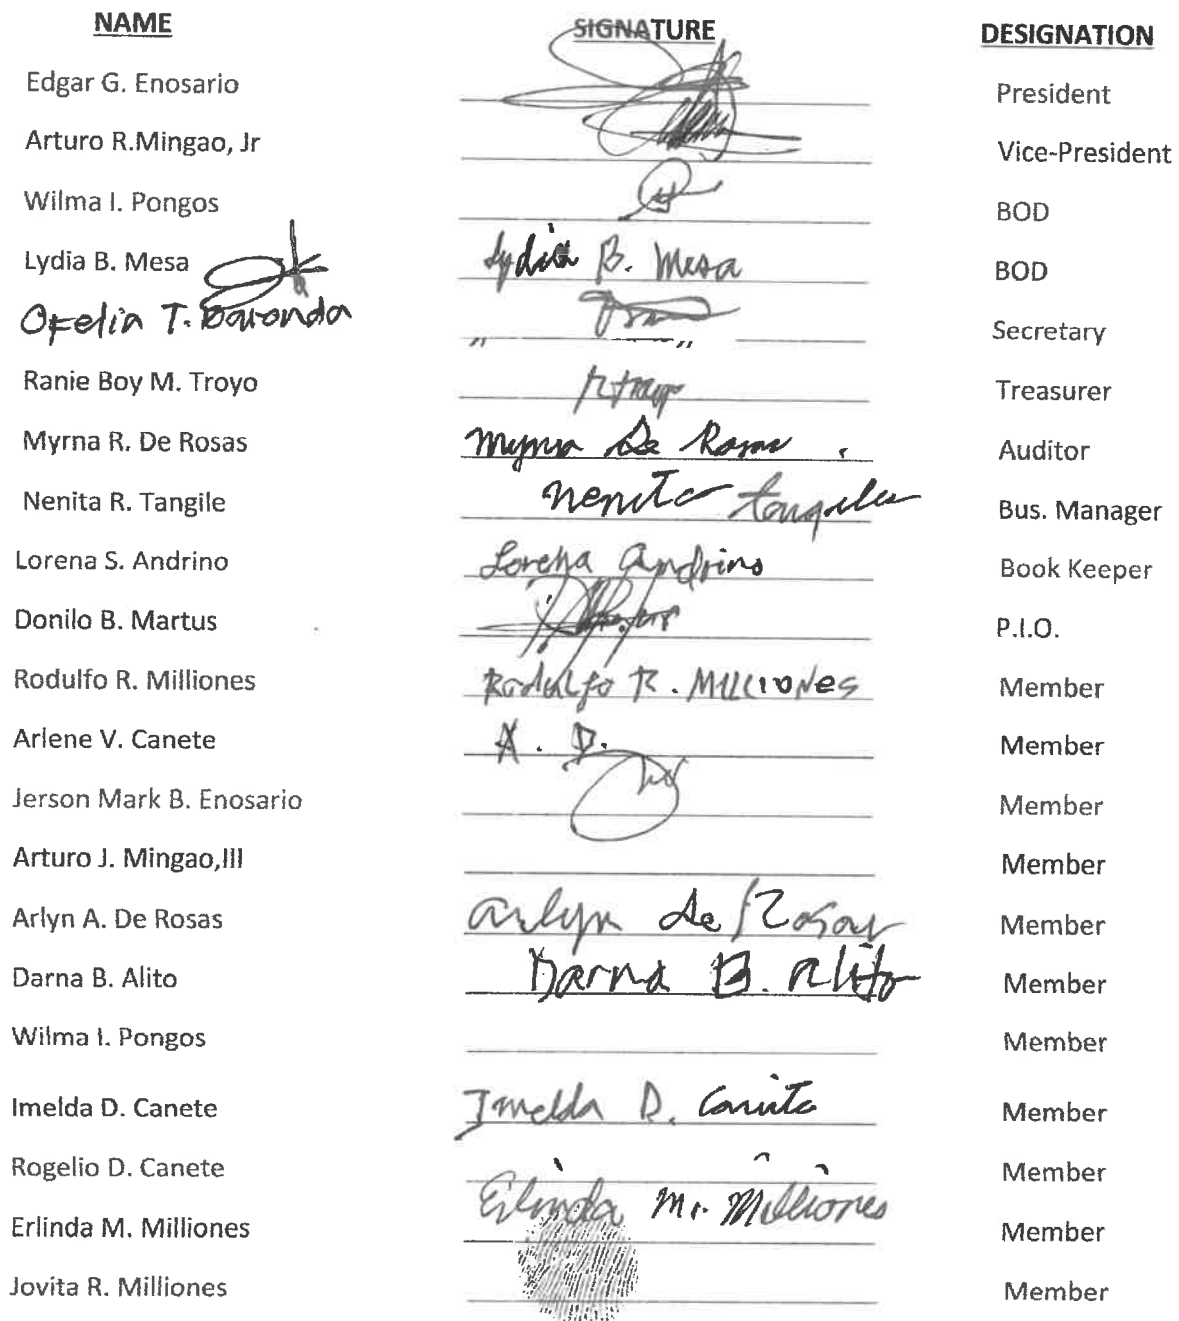 NAME SIGNATURE DESIGNATION
Edgar G. Enosario President
Arturo R.Mingao, Jr Vice-President
Wilma I. Pongos BOD
Lydia B. Mesa Lydia B. Mesa BOD
Ofelia T. " " Secretary
Ranie Boy M. Troyo Treasurer
Myrna R. De Rosas Myrna De Rosas . Auditor
Nenita R. Tangile Nenita Tangile Bus. Manager
Lorena S. Andrino Lorena Andrino Book Keeper
Donilo B. Martus P.I.O.
Rodulfo R. Milliones Rodulfo R. Milliones Member
Arlene V. Canete A. D. Member
Jerson Mark B. Enosario Member
Arturo J. Mingao,III Member
Arlyn A. De Rosas Arlyn De Rosas Member
Darna B. Alito Darna B. Alito Member
Wilma I. Pongos Member
Imelda D. Canete Imelda D. Canete Member
Rogelio D. Canete Member
Erlinda M. Milliones Erlinda M. Milliones Member
Jovita R. Milliones Member